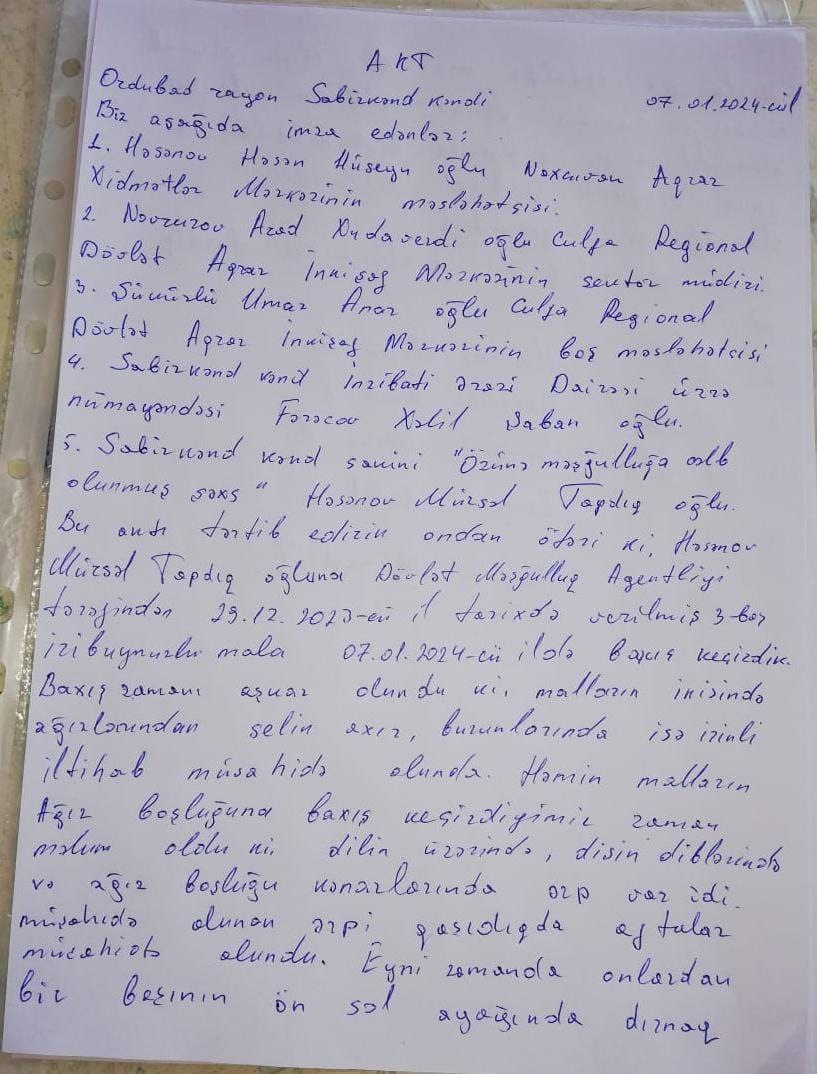 AKT
Ordubad rayon Sabirkənd kəndi 07.01.2024-cü il
Biz aşağıda imza edənlər:
1. Həsənov Həsən Hüseyn oğlu Naxcıvan Aqrar
Xidmətlər Mərkəzinin məsləhətçisi.
2. Novruzov Azad Xudaverdi oğlu Culfa Regional
Dövlət Aqrar İnkişaf Mərkəzinin sektor müdiri.
3. Sümürlü Umar Anar oğlu Culfa Regional
Dövlət Aqrar İnkişaf Mərkəzinin baş məsləhətcisi
4. Sabirkənd kənd İnzibati ərazi Dairəsi üzrə
nümayəndəsi Fərəcov Xəlil Şaban oğlu.
5. Sabirkənd kənd sakini "Özünə məşğulluğa cəlb
olunmuş şəxs" Həsənov Mürsəl Tapdıq oğlu.
Bu aktı tərtib edirik ondan ötəri ki, Həsənov
Mürsəl Tapdıq oğluna Dövlət Məşğulluq Agentliyi
tərəfindən 29.12.2023-cü il tarixdə verilmiş 3-baş
iribuynuzlu mala 07.01.2024-cü ildə baxış keçirdik.
Baxış zamanı aşkar olundu ki, malların ikisində
ağızlarından selik axır, burunlarında isə irinli
iltihab müşahidə olundu. Həmin malların
Ağız boşluğuna baxış keçirdiyimiz zaman
məlum oldu ki, dilin üzərində, dişin diblərində
və ağız boşluğu kənarlarında ərp var idi.
müşahidə olunan ərpi qaşıdıqda aftalar
müşahidə olundu. Eyni zamanda onlardan
bir başının ön sol ayağında dırnaq